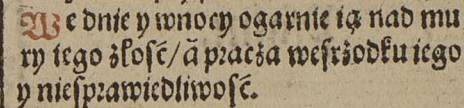 We dnie y wnocy ogarnie ią nad mu
ry iego złość/ ã pracża weſrżodku iego
y nieſprawiedliwość.